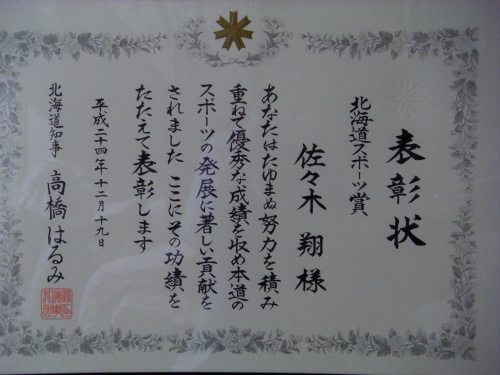 表彰状
北海道スポーツ賞
佐々木 翔 様
あなたはたゆまぬ努力を積み
重ねて優秀な成績を収め本道の
スポーツの発展に著しい貢献を
されました ここにその功績を
たたえて表彰します
平成二十四年十二月十九日
北海道知事 高橋はるみ